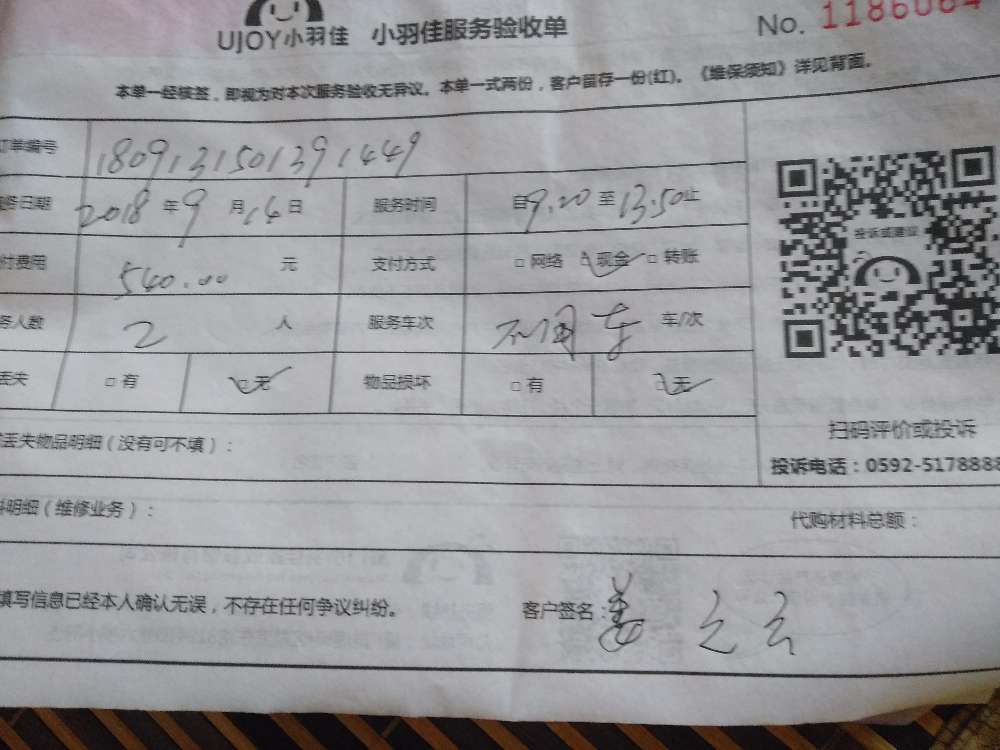 UJOY小羽佳 小羽佳服务验收单 No. 1186064
本单一经核签，即视为对本次服务验收无异议。本单一式两份，客户留存一份(红)。《维保须知》详见背面。
订单编号 1809131501391449
服务日期 2018 年 9 月 14 日 服务时间 自9.20 至 13.50止
付费用 540.00 元 支付方式 □ 网络 □ 现金 □ 转账
务人数 2 人 服务车次 不用车 车/次
丢失 □ 有 □ 无 物品损坏 □ 有 □ 无
投诉或建议
扫码评价或投诉
投诉电话：0592-5178888
丢失物品明细（没有可不填）：
料明细（维修业务）： 代购材料总额：
填写信息已经本人确认无误，不存在任何争议纠纷。 客户签名：